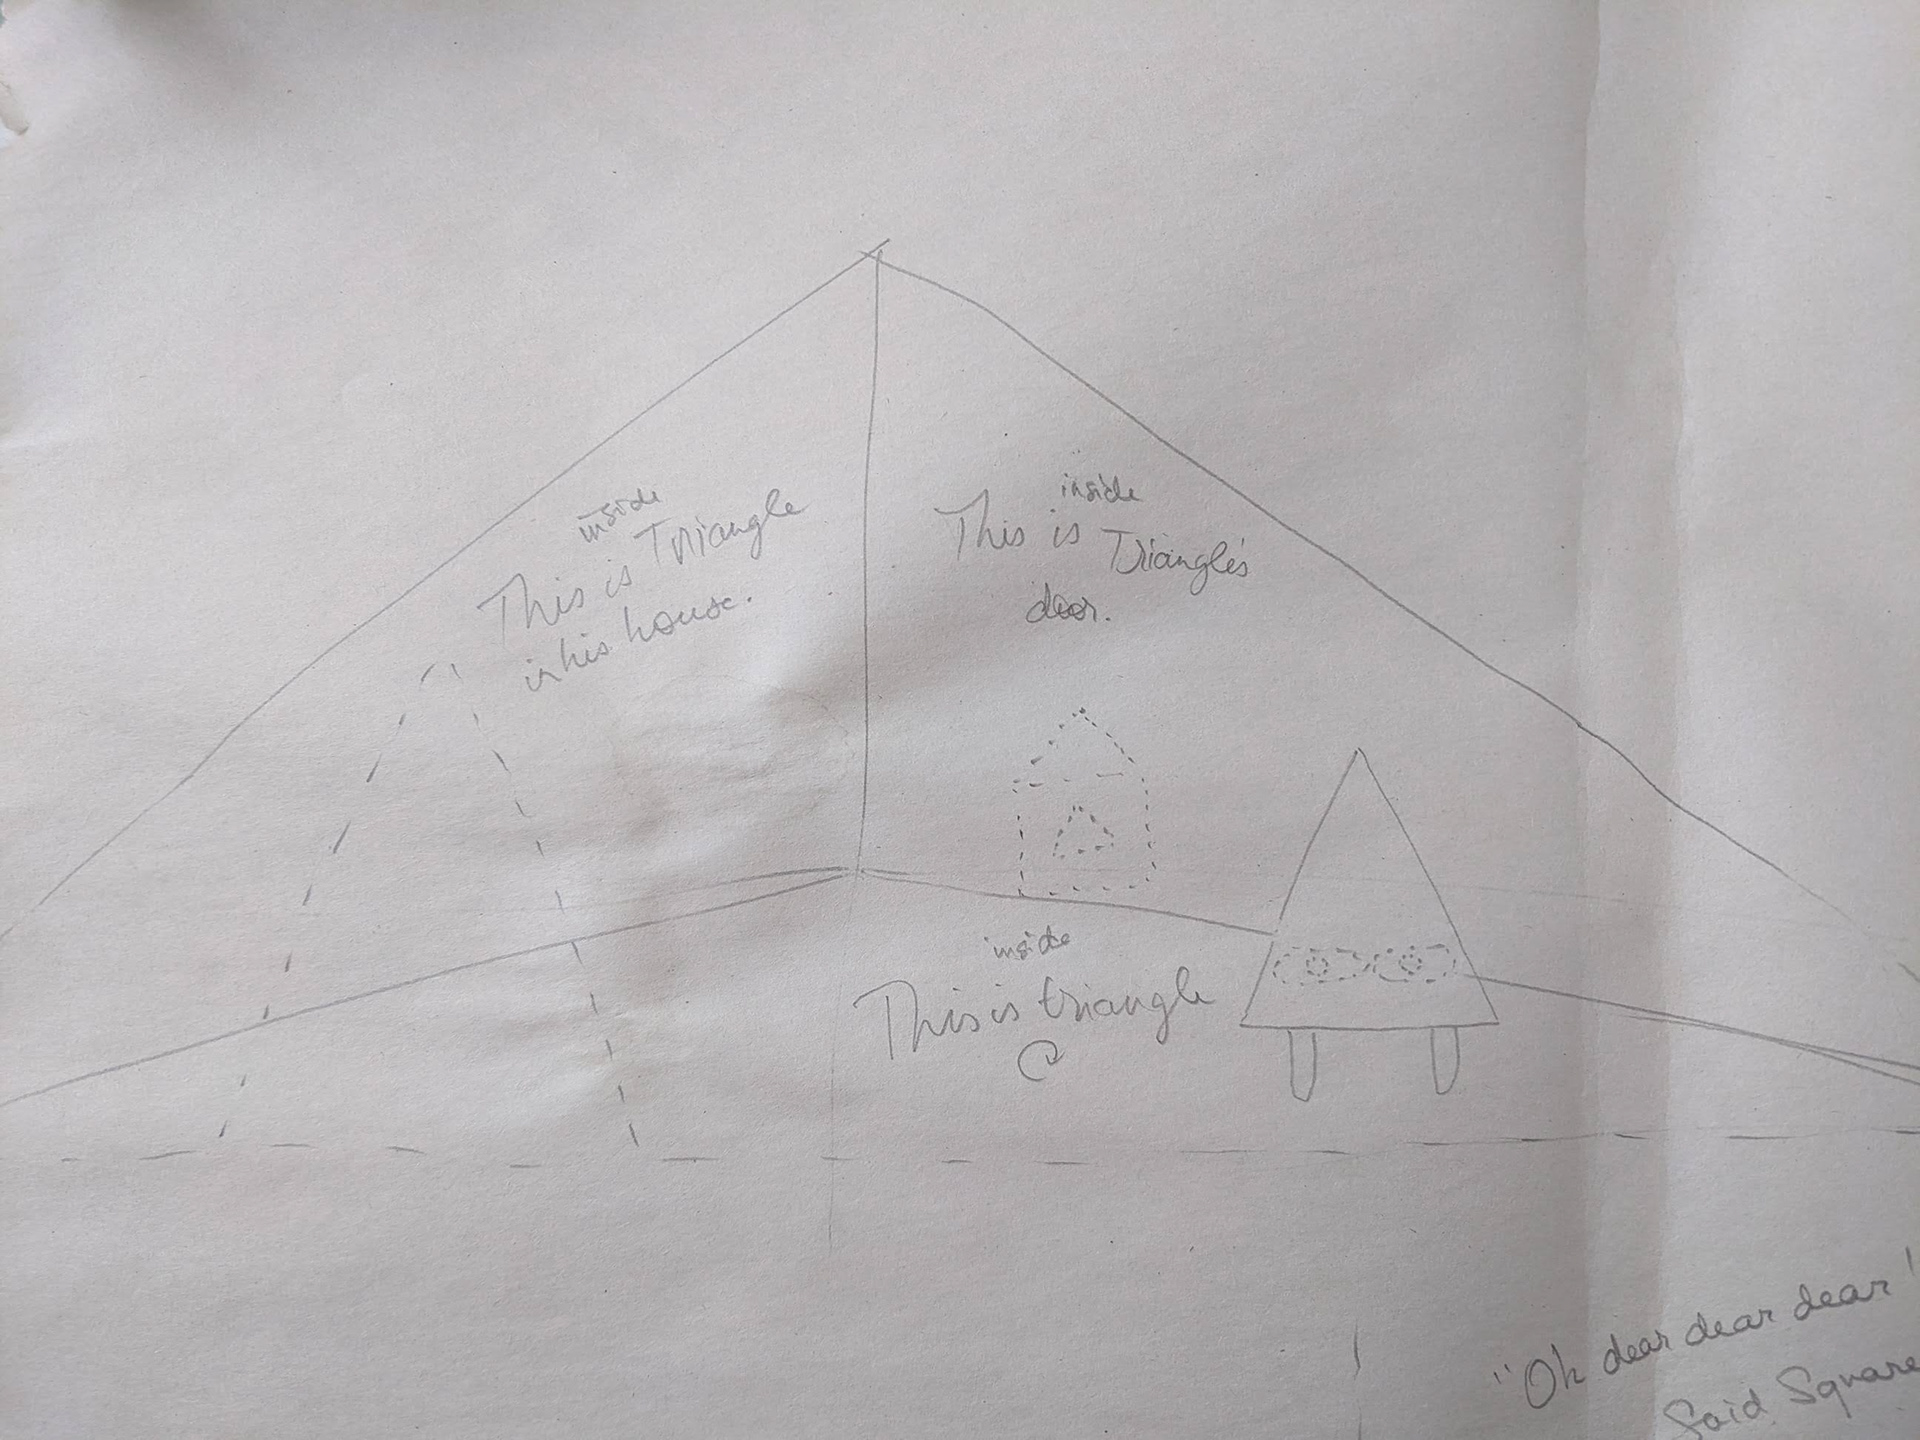 inside
This is Triangle
in his house.
inside
This is Triangle's
door.
inside
This is triangle
"Oh dear dear dear!
Said Square